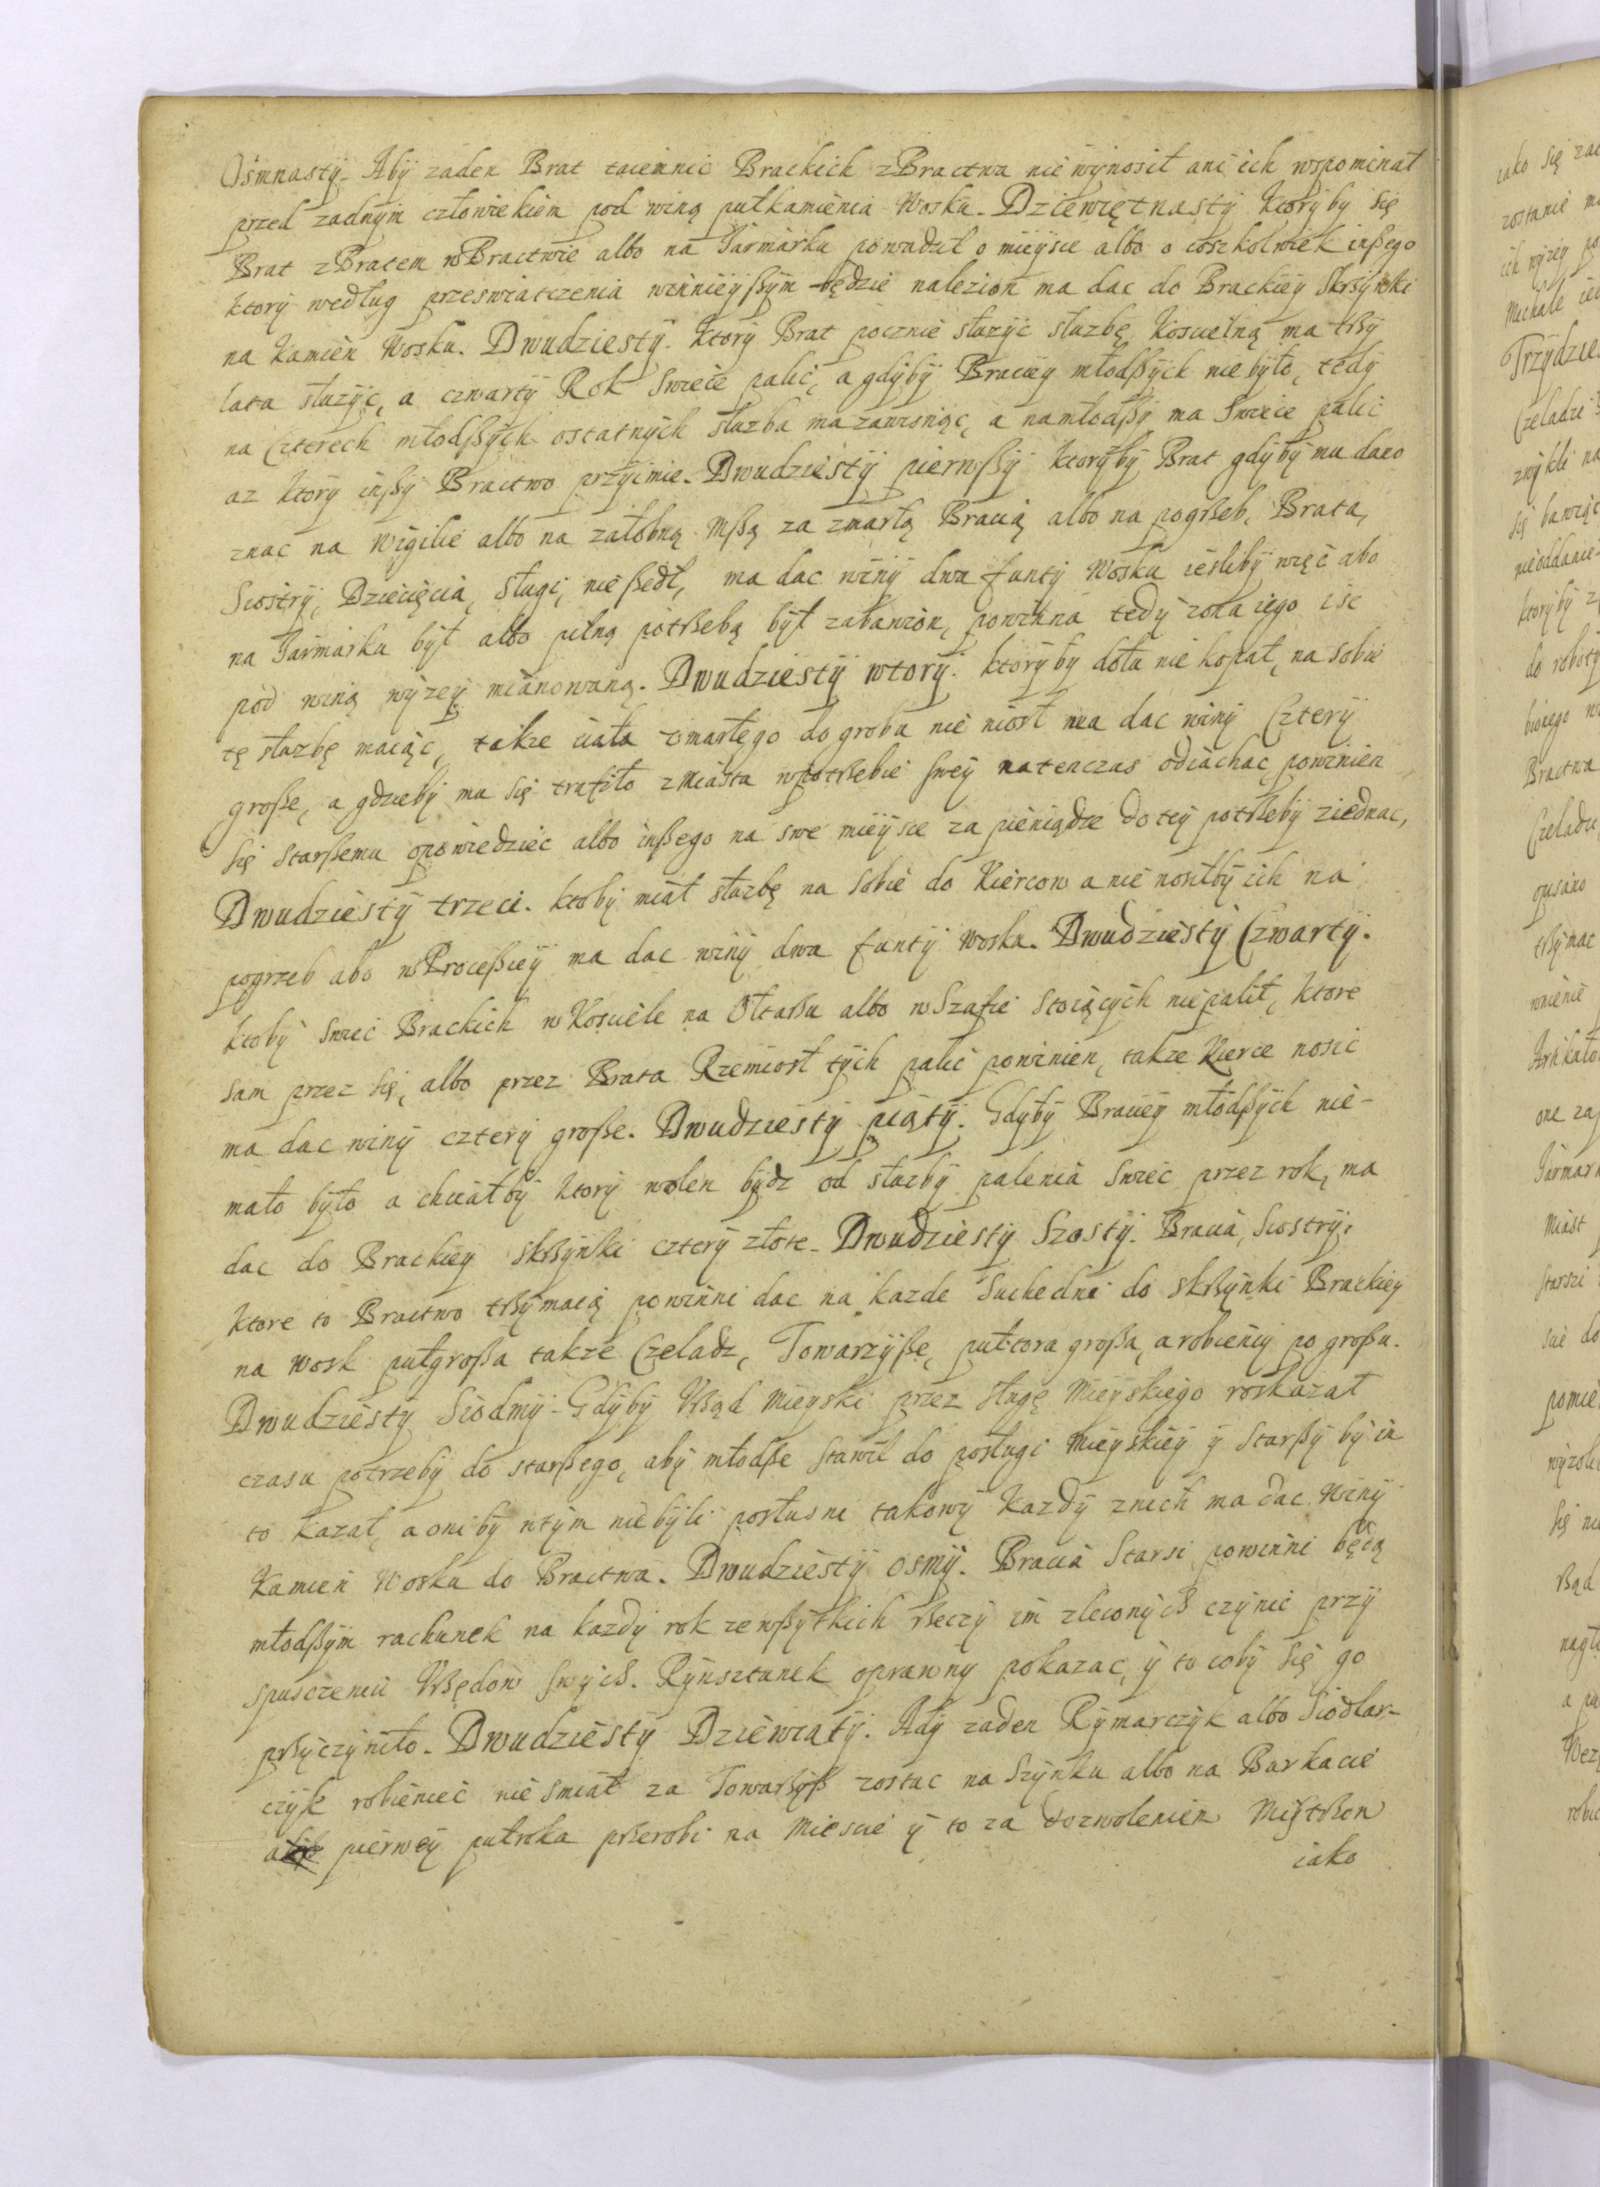 Osmnastÿ. Abÿ zaden Brat taiemnic Brackich z Bractwa nie wÿnosił ani ich wspominał
przed zadnÿm człowiekiem pod winą pułkamienia Wosku. Dziewiętnastÿ Ktorÿ by się
Brat z Bratem w Bractwie albo na Iarmarku powadził o mieÿsce albo o coszkolwiek inßego
ktorÿ według przeswiatczenia winnieÿßÿm będzie nalezion ma dac do Brackieÿ Skrzÿnki
na Kamien Wosku. Dwudziestÿ. Ktorÿ Brat pocznie słuzÿc słuzbę Koscielną ma trßÿ
lata słuzÿc, a czwartÿ Rok swiece palic, a gdÿbÿ Bracieÿ młodßÿch nie było, tedÿ
na Czterech młodßÿch ostatnÿch słuzba ma zawisnąc, a namłodßÿ ma Swiece palic
az ktorÿ inßÿ Bractwo przÿimie. Dwudziestÿ pierwßÿ ktorÿbÿ Brat gdÿbÿ mu dano
znac na wigilie albo na załobną Mßą za zmarłą Bracią albo na pogrßeb, Brata,
Siostrÿ, Dziecięcia, sługi, nie ßedł, ma dac winÿ dwa funtÿ Wosku iesliby więc abo
na Iarmarku bÿł albo pilną potrßebą bÿł zabawion, powinna tedÿ zona iego isc
pod winą wÿzeÿ mianowaną. Dwudziestÿ wtorÿ. ktorÿ by dołu nie kopał, na sobie
tę słuzbę maiąc, takze ciała zmarłego do grobu nie niosł ma dac winÿ Czterÿ
große, a gdziebÿ mu się trafiło z Miasta w potrßebie sweÿ natenczas odiachac, powinien
się starßemu opowiedziec albo inßego na swe mieÿsce za pieniądze do teÿ potrßebÿ ziednac,
Dwudziestÿ trzeci. ktobÿ miał słuzbę na sobie do Kiercow a nie nosiłbÿ ich na
pogrzeb abo w Proceßieÿ ma dac winÿ dwa funtÿ Wosku. Dwudziestÿ Czwartÿ.
ktobÿ swiec Brackich w Kosciele na Ołtarßu albo w Szafie stoiącÿch nie palił, ktore
sam przez się, albo przez Brata Rzemiosł tÿch palic powinien, takze Kierce nosic
ma dac winÿ czterÿ große. Dwudziestÿ piątÿ. Gdÿbÿ Bracieÿ młodßÿch nie-
mało bÿło a chciałbÿ ktorÿ wolen bÿdz od słuzbÿ palenia swiec przez rok, ma
dac do Brackieÿ skrßÿnki czterÿ złote. Dwudziestÿ Szostÿ. Bracia, Siostrÿ,
ktore to Bractwo trßÿmaią powinni dac na kazde Suchedni do skrßÿnki Brackieÿ
na wosk pułgroßa takze Czeladz, Towarzÿße, pułtora großa, a robiency po großu.
Dwudziestÿ Siodmÿ. Gdÿbÿ Vrßąd Mieyski przez sługę Mieyskiego roskazał
czasu potrzebÿ do starßego, abÿ młodße stawił do posługi Mieyskieÿ ÿ starßÿ by im
to kazał, a oni bÿ w tÿm nie bÿli posłusni takowÿ kazdÿ z nich ma dac winÿ
Kamien Wosku do Bractwa. Dwudziestÿ osmÿ. Bracia Starsi powinni będą
młodßÿm rachunek na kazdÿ rok ze wßÿtkich rßeczÿ im zleconÿch czÿnic przÿ
spusczeniu Vrßędow swÿch. Rÿnsztunek oprawny pokazac, ÿ to cobÿ się go
prßÿczÿniło. Dwudziestÿ Dziewiatÿ. Abÿ zaden Rÿmarczÿk albo Siodlar-
czÿk robieniec nie smiał za Towarßÿß zostac na Szÿnku albo na Barkacie
pierweÿ pułroka prßerobi na Miescie ÿ to za dozwoleniem Mistrßow
iako